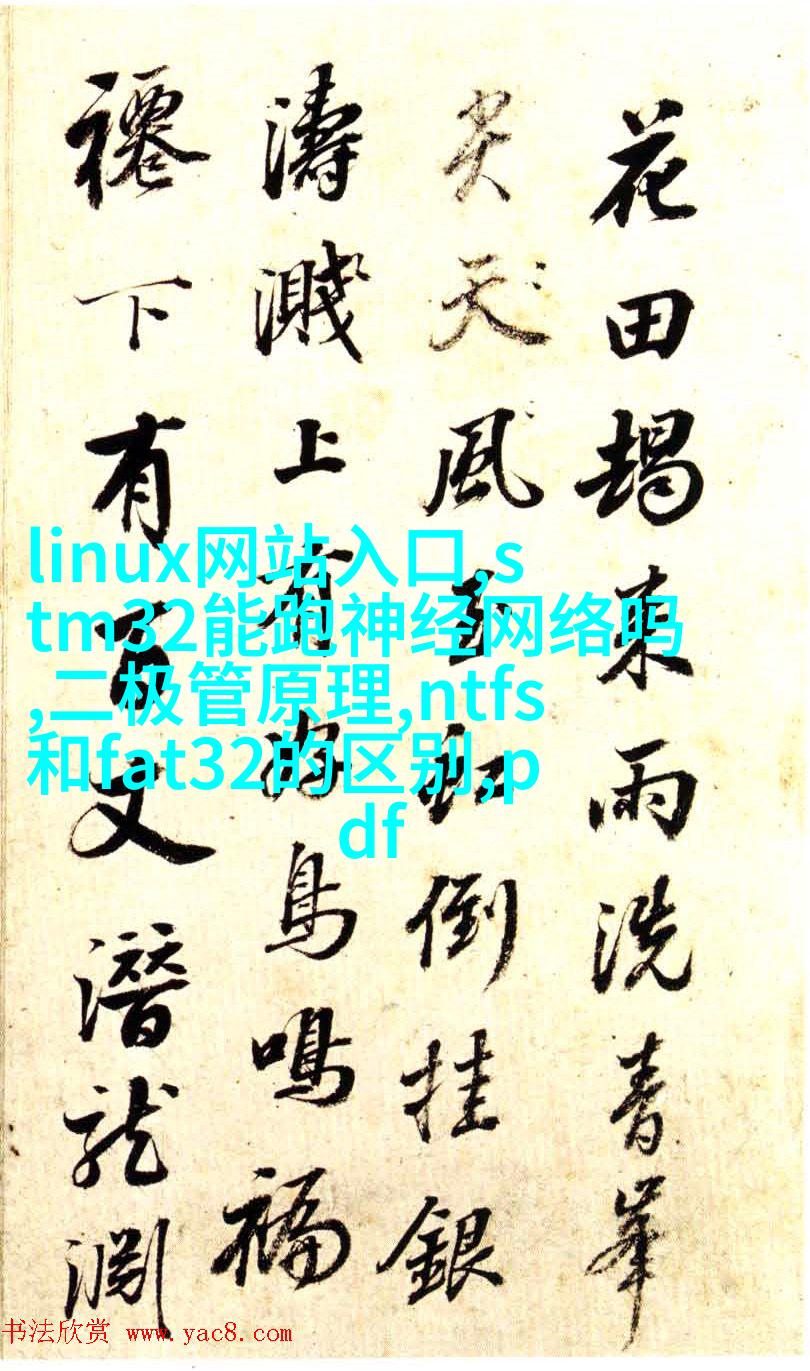 花田朅東雨洗青峯
尖天風玉虹倒挂銀
濤濺上有好鳥鳴福
下有百丈潛龍淵
linux网站入口,s
tm32能跑神经网络吗
,二极管原理,ntfs
和fat32的区别,p
df
书法欣赏 www.yac8.com